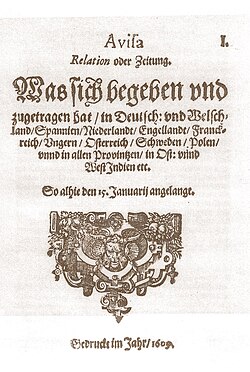 Avisa I.
Relation oder Zeitung.
Was sich begeben vnd
zugetragen hat / in Deutsch: vnd Welsch-
land/Spannien/Niederlandt/Engellandt/Franck-
reich/Vngern/Osterreich/Schweden/Polen/
vnnd in allen Provintzen/in Ost: vnnd
WestIndien etc.
So alhie den 15. Januarij angelangt.
Gedruckt im Jahr/1609.